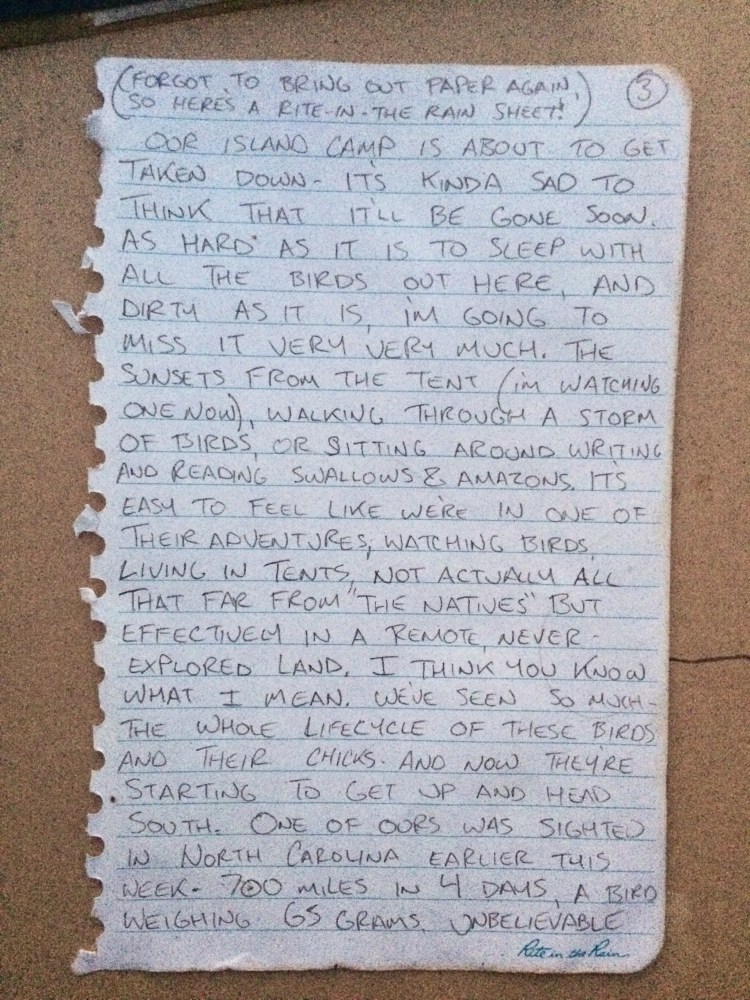 (FORGOT TO BRING OUT PAPER AGAIN,
SO HERE'S A RITE-IN-THE RAIN SHEET!)
3
OUR ISLAND CAMP IS ABOUT TO GET
TAKEN DOWN- IT'S KINDA SAD TO
THINK THAT IT'LL BE GONE SOON.
AS HARD AS IT IS TO SLEEP WITH
ALL THE BIRDS OUT HERE, AND
DIRTY AS IT IS, I'M GOING TO
MISS IT VERY VERY MUCH. THE
SUNSETS FROM THE TENT (I'M WATCHING
ONE NOW), WALKING THROUGH A STORM
OF BIRDS, OR SITTING AROUND WRITING
AND READING SWALLOWS & AMAZONS. IT'S
EASY TO FEEL LIKE WE'RE IN ONE OF
THEIR ADVENTURES, WATCHING BIRDS,
LIVING IN TENTS, NOT ACTUALLY ALL
THAT FAR FROM "THE NATIVES" BUT
EFFECTIVELY IN A REMOTE, NEVER-
EXPLORED LAND. I THINK YOU KNOW
WHAT I MEAN. WE'VE SEEN SO MUCH-
THE WHOLE LIFECYCLE OF THESE BIRDS
AND THEIR CHICKS. AND NOW THEY'RE
STARTING TO GET UP AND HEAD
SOUTH. ONE OF OURS WAS SIGHTED
IN NORTH CAROLINA EARLIER THIS
WEEK- 700 MILES IN 4 DAYS, A BIRD
WEIGHING 65 GRAMS. UNBELIEVABLE
Rite in the Rain